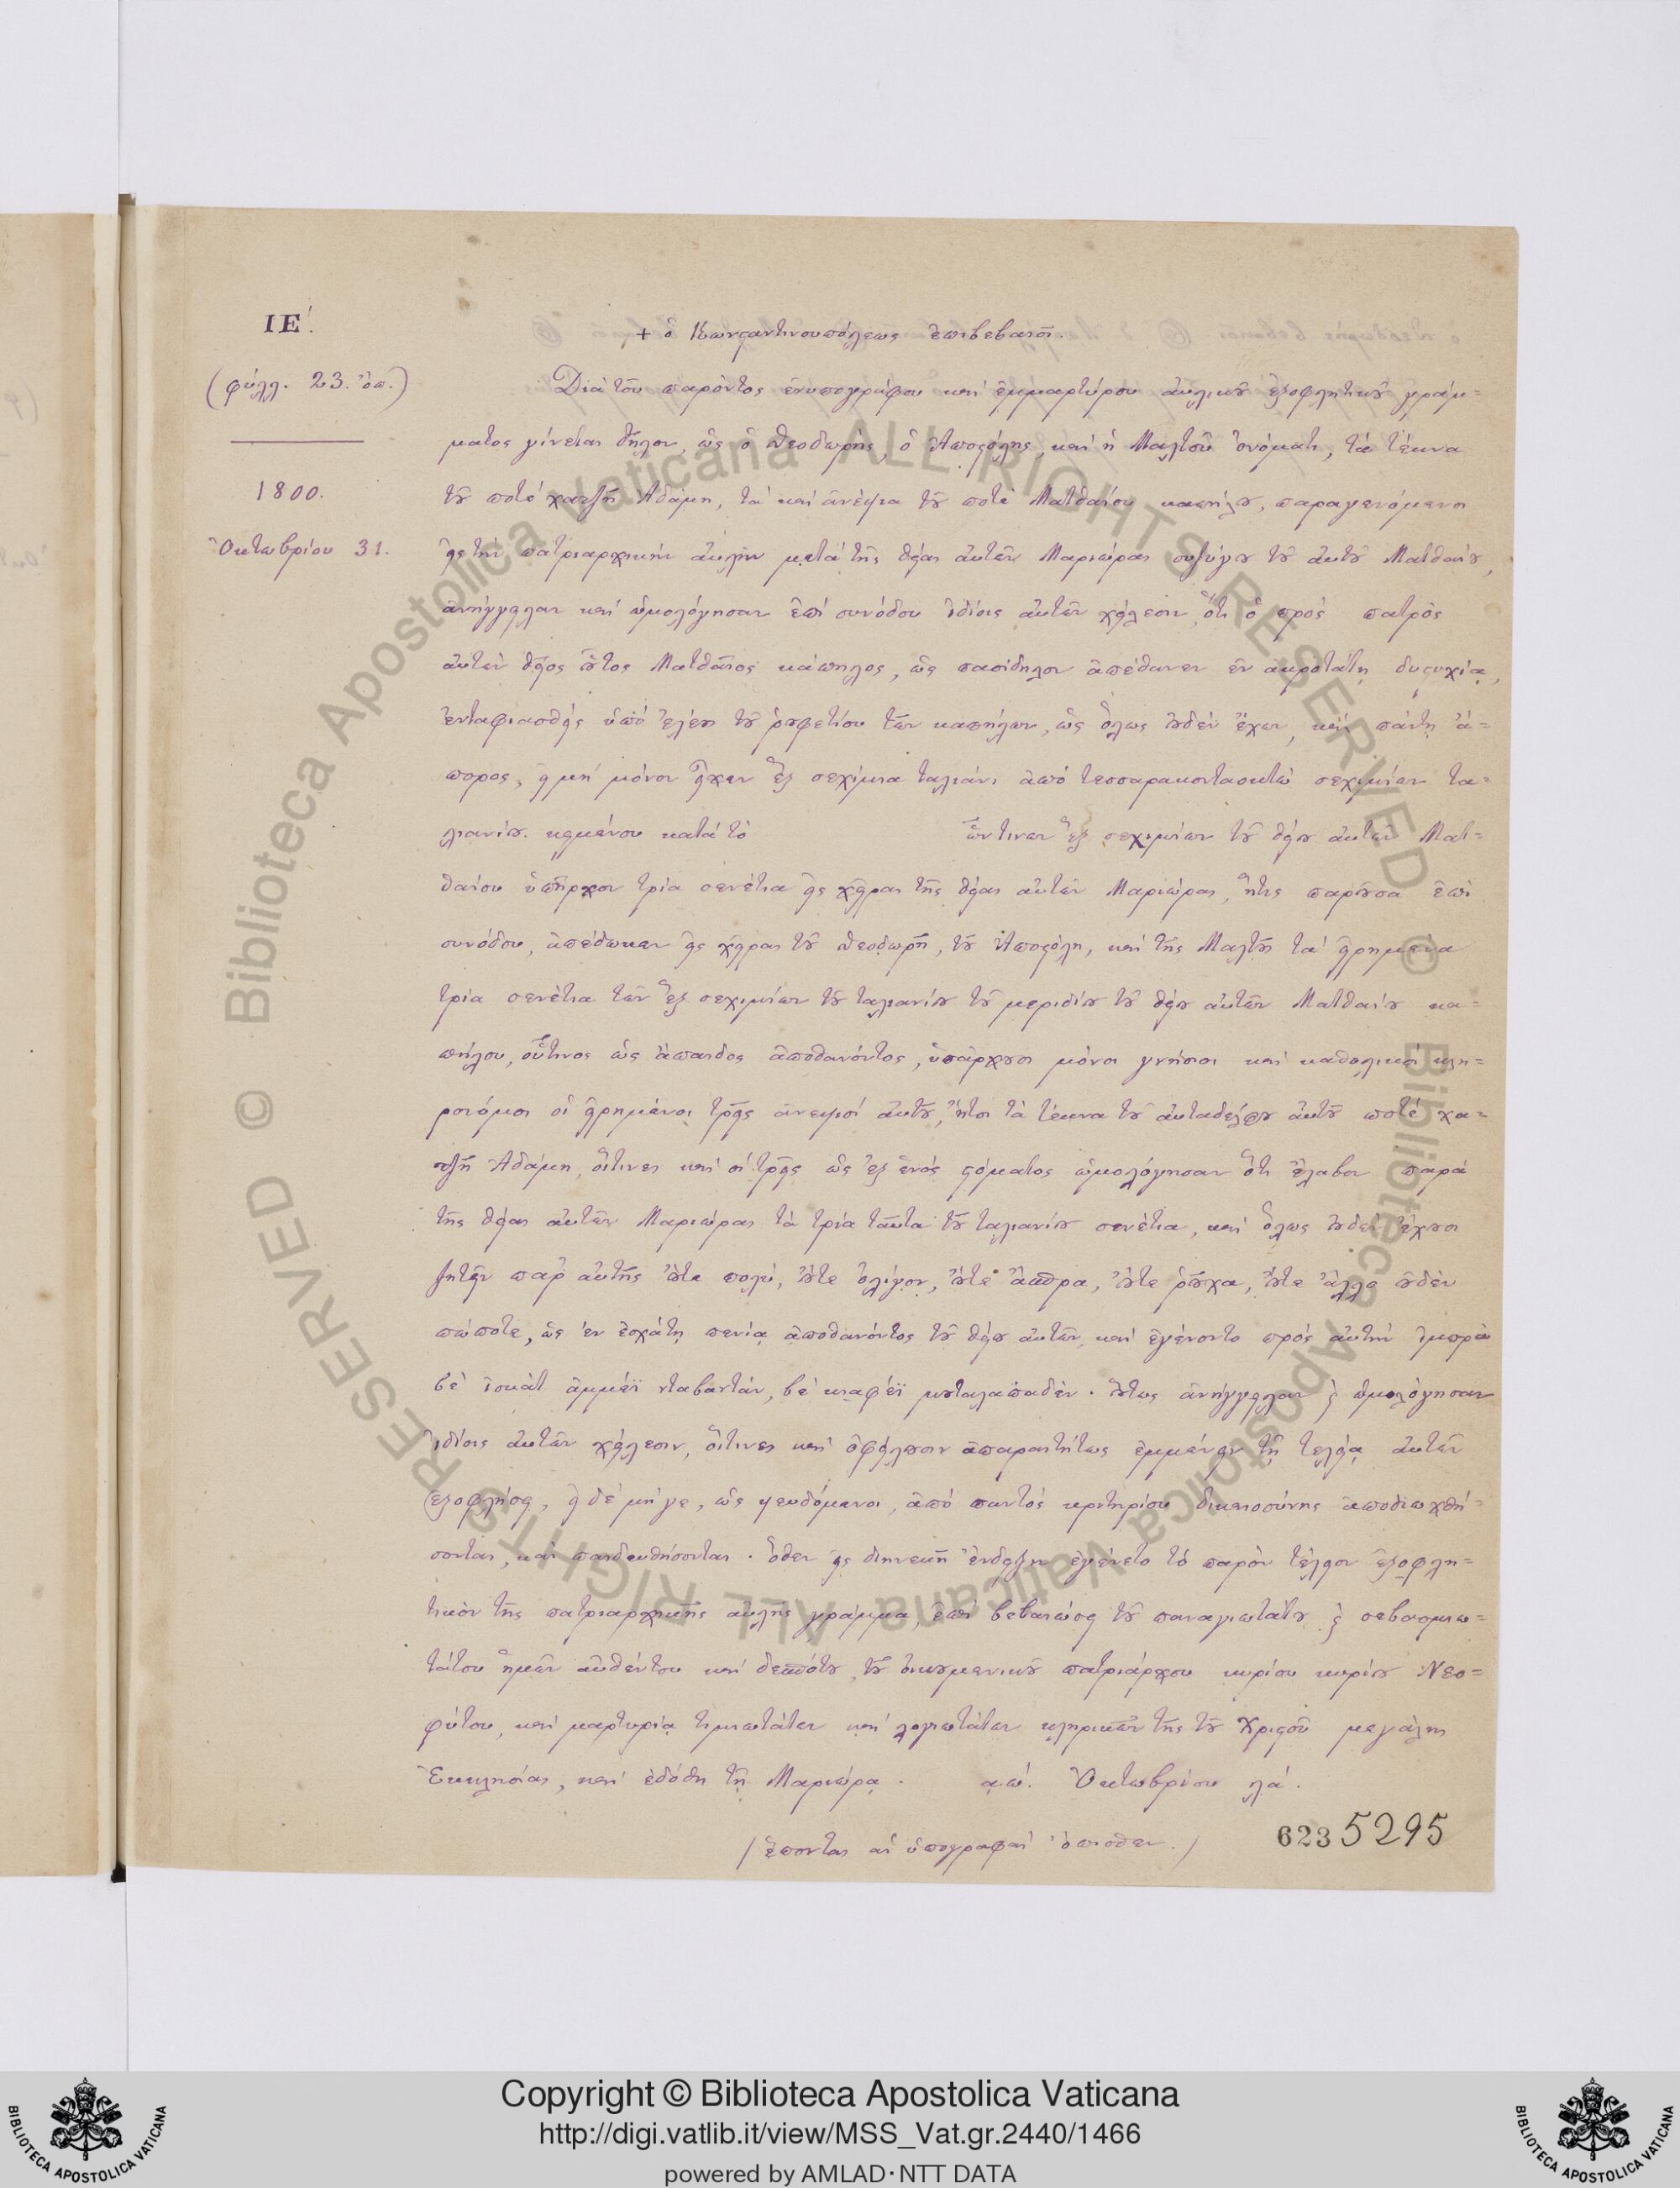 ΙΕ΄.
(φύλλ. 23. ὄπ.)
1800.
Ὀκτωβρίου 31.
+ ὁ Κωνσταντινουπόλεως ἐπιβεβαιοῖ.
Διὰ τοῦ παρόντος ἐνυπογράφου καὶ ἐμμαρτύρου αὐλικοῦ ἐξοφλητικοῦ γράμ=
ματος γίνεται δῆλον, ὡς ὁ Θεοδωρής, ὁ Ἀποστόλης, καὶ ἡ Μαλτοῦ ὀνόματι, τὰ τέκνα
τοῦ ποτὲ χατζῆ Ἀδάμη, τὰ καὶ ἀνέψια τοῦ ποτὲ Ματθαίου καπήλου, παραγενόμενοι
εἰς τὴν πατριαρχικὴν αὐλὴν μετὰ τῆς θείας αὐτῶν Μαριώρας συζύγου τοῦ αὐτοῦ Ματθαίου,
ἀνήγγειλαν καὶ ὡμολόγησαν ἐπὶ συνόδου ἰδίοις αὐτῶν χείλεσιν, ὅτι ὁ πρὸς πατρὸς
αὐτῶν θεῖος οὗτος Ματθαῖος κάπηλος, ὡς πασίδηλον ἀπέθανεν ἐν ἀκροτάτῃ δυστυχίᾳ,
ἐνταφιασθεὶς ὑπὸ ἐλέη τοῦ ῥουφετίου τῶν καπήλων, ὡς ὅλως οὐδὲν ἔχων, καὶ πάντῃ ἄ=
πορος, εἰ μὴ μόνον εἶχεν ἓξ σεχίμια ταλιάνι ἀπὸ τεσσαρακονταοκτὼ σεχιμίων τα=
λιανίου κειμένου κατὰ τὸ ὧντινων ἓξ σεχιμίων τοῦ θείου αὐτῶν Ματ=
θαίου ὑπῆρχον τρία σενέτια εἰς χεῖρας τῆς θείας αὐτῶν Μαριώρας, ἥτις παροῦσα ἐπὶ
συνόδου, ἀπέδωκεν εἰς χεῖρας τοῦ Θεοδωρῆ, τοῦ Ἀποστόλη, καὶ τῆς Μαλτῆς τὰ εἰρημένα
τρία σενέτια τῶν ἓξ σεχιμίων τοῦ ταλιανίου τοῦ μεριδίου τοῦ θείου αὐτῶν Ματθαίου κα=
πήλου, οὗτινος ὡς ἄπαιδος ἀποθανόντος, ὑπάρχουσι μόνοι γνήσιοι καὶ καθολικοὶ κλη=
ρονόμοι οἱ εἰρημένοι τρεῖς ἀνεψιοὶ αὐτοῦ, ἤτοι τὰ τέκνα τοῦ αὐταδέλφου αὐτοῦ ποτὲ χα=
τζῆ Ἀδάμη, οἵτινες καὶ οἱ τρεῖς ὡς ἐξ ἑνὸς στόματος ὡμολόγησαν ὅτι ἔλαβον παρὰ
τῆς θείας αὐτῶν Μαριώρας τὰ τρία ταῦτα τοῦ ταλιανίου σενέτια, καὶ ὅλως οὐδὲν ἔχουσι
ζητεῖν παρ' αὐτῆς οὔτε πολύ, οὔτε ὀλίγον, οὔτε ἄσπρα, οὔτε ῥοῦχα, οὔτε ἄλλο οὐδὲν
πώποτε, ὡς ἐν ἐσχάτῃ πενίᾳ ἀποθανόντος τοῦ θείου αὐτῶν, καὶ ἐγένοντο πρὸς αὐτὴν ἰμπρὰ
βὲ ἰσκὰτ ἀμμέϊ νταβαντάν, βὲ κιαφέϊ μουταλαπαδέν. οὕτως ἀνήγγειλαν ϗ ὡμολόγησαν
ἰδίοις αὐτῶν χείλεσιν, οἵτινες καὶ ὀφείλουσιν ἀπαραιτήτως ἐμμένειν τῇ τελείᾳ αὐτῶν
ἐξοφλήσει, εἰ δὲ μή γε, ὡς ψευδόμενοι, ἀπὸ παντὸς κριτηρίου δικαιοσύνης ἀποδιωχθή=
σονται, καὶ παιδευθήσονται. ὅθεν εἰς διηνεκῆ ἔνδειξιν ἐγένετο τὸ παρὸν τέλειον ἐξοφλη=
τικὸν τῆς πατριαρχικῆς αὐλῆς γράμμα, ἐπὶ βεβαιώσει τοῦ παναγιωτάτου ϗ σεβασμιω=
τάτου ἡμῶν αὐθέντου καὶ δεσπότου, τοῦ οἰκουμενικοῦ πατριάρχου κυρίου κυρίου Νεο=
φύτου, καὶ μαρτυρίᾳ τιμιωτάτων καὶ λογιωτάτων κληρικῶν τῆς τοῦ Χριστοῦ μεγάλης
Ἐκκλησίας, καὶ ἐδόθη τῇ Μαριώρᾳ. αω΄. Ὀκτωβρίου λα΄.
/ ἕπονται αἱ ὑπογραφαὶ ὄπισθεν. /
623 5295
Copyright © Biblioteca Apostolica Vaticana
http://digi.vatlib.it/view/MSS_Vat.gr.2440/1466
powered by AMLAD·NTT DATA